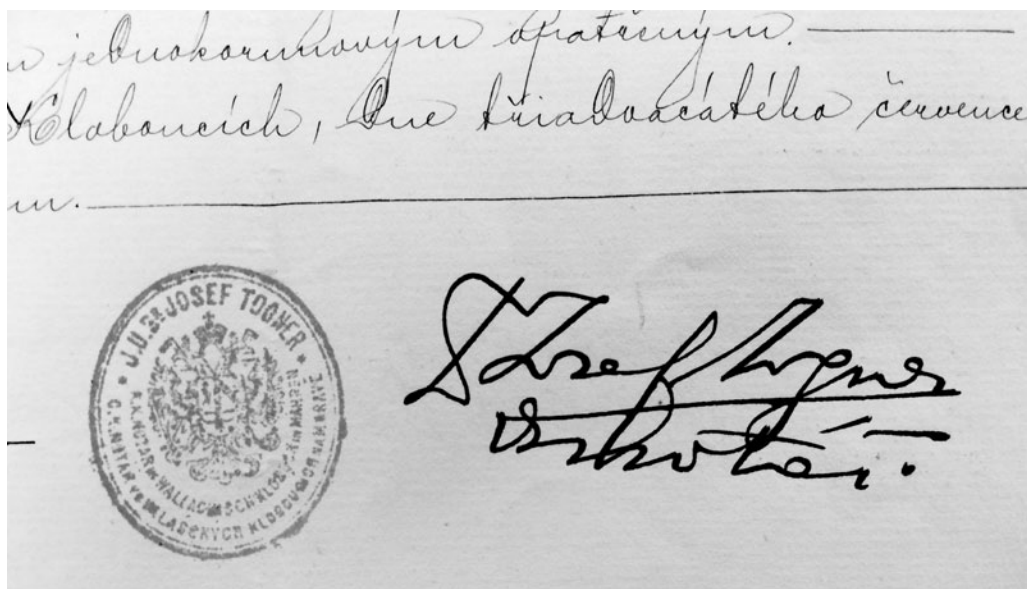 jednokorunovým opatřeným.
Kloboucích, dne třiadvacátého července
J.U.Dr JOSEF TOGNER
K.K. NOTAR IN WALLACHISCH KLOBOUK IN MÄHREN
C.K. NOTÁŘ VE VALAŠSKÝCH KLOBOUKÁCH NA MORAVĚ
Dr Josef Togner
notář.